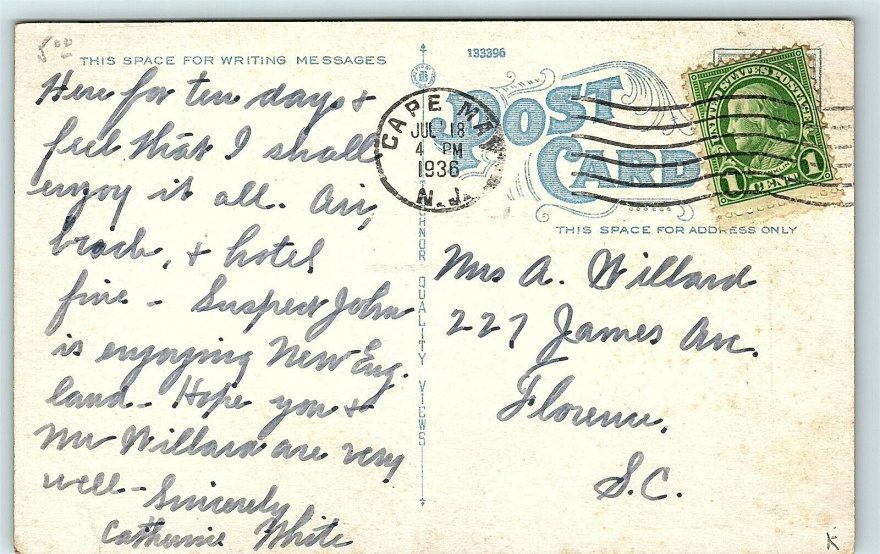 5.00
THIS SPACE FOR WRITING MESSAGES
Here for ten days &
feel that I shall
enjoy it all. Air,
beach, & hotel
fine - Suspect John
is enjoying New Eng.
land - Hope you &
Mr Willard are very
well - Sincerely
Catherine White
133396
POST
CARD
CAPE MAY
JUL 18
4 PM
1936
N.J.
UNITED STATES POSTAGE
1 CENT 1
QUALITY VIEWS
THIS SPACE FOR ADDRESS ONLY
Mrs A. Willard
227 James Ave.
Florence,
S.C.
K